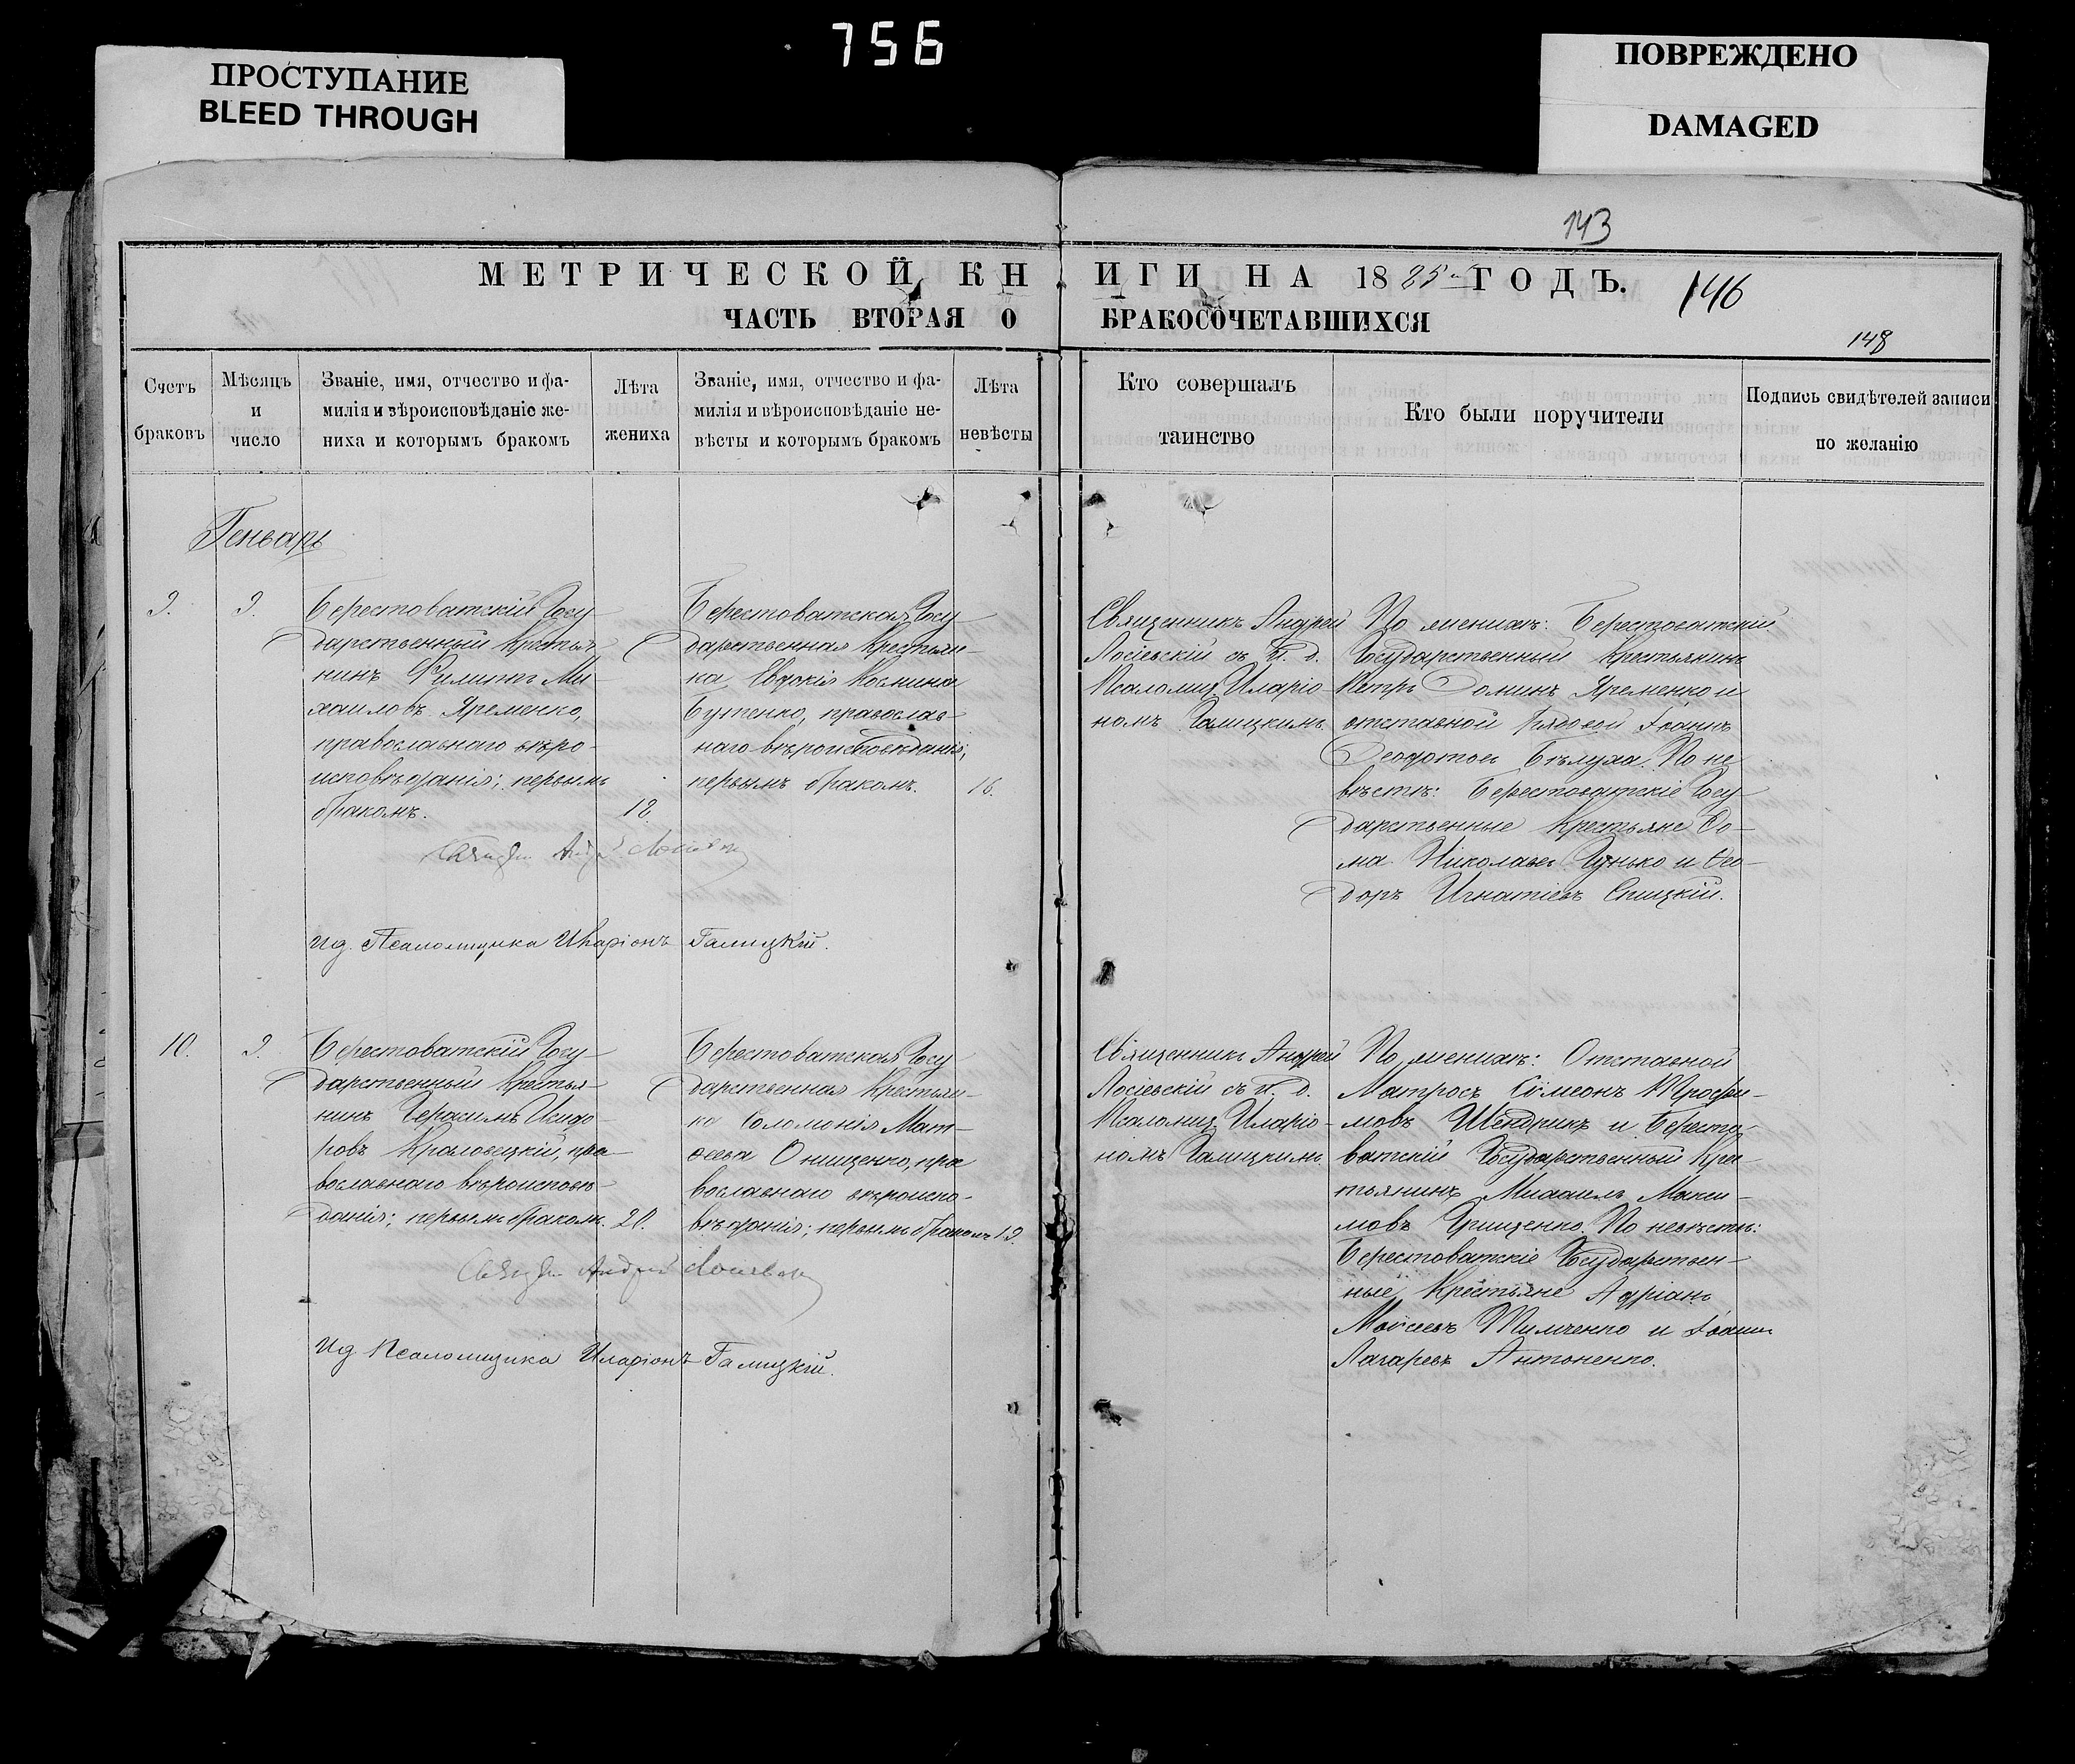 756
ПРОСТУПАНИЕ
BLEED THROUGH
ПОВРЕЖДЕНО
DAMAGED
143
МЕТРИЧЕСКОЙ КНИГИ НА 1885 ГОДЪ.
146
ЧАСТЬ ВТОРАЯ О БРАКОСОЧЕТАВШИХСЯ
148
Счетъ
браковъ
Мѣсяцъ
и
число
Званіе, имя, отчество и фа-
милія и вѣроисповѣданіе же-
ниха и которымъ бракомъ
Лѣта
жениха
Званіе, имя, отчество и фа-
милія и вѣроисповѣданіе не-
вѣсты и которымъ бракомъ
Лѣта
невѣсты
Кто совершалъ
таинство
Кто были поручители
Подпись свидѣтелей записи
по желанію
Генварь
9.
9.
Берестоватскій Госу-
дарственный Крестья-
нинъ Филиппъ Ми-
хаиловъ Яременко,
православнаго вѣро-
исповѣданія; первымъ
бракомъ.
18.
Берестоватская Госу-
дарственная Крестьян-
ка Евдокія Космина
Бутенко, православ-
наго вѣроисповѣданія;
первымъ бракомъ.
16.
Священникъ Андрей
Лосіевскій съ и. д.
Псаломщ. Иларіо-
номъ Галицкимъ.
По женихѣ: Берестоватскій
Государственный Крестьянинъ
Петръ Доминъ Яременко и
отставной Рядовой Іоаннъ
Бѣлуха. По не-
вѣстѣ: Берестоватскіе Госу-
дарственные Крестьяне Ѳо-
ма Николаевъ Гунько и Ѳео-
доръ Игнатіевъ Спицкій.
Андрей Лосіевскій
Ид. Псаломщика Иларіонъ Галицкій.
10.
9.
Берестоватскій Госу-
дарственный Крестья-
нинъ Герасимъ Исидо-
ровъ Краловецкій, пра-
вославнаго вѣроисповѣ-
данія; первымъ бракомъ.
20.
Берестоватская Госу-
дарственная Крестьян-
ка Соломонія Мат-
ѳеева Онищенко, пра-
вославнаго вѣроиспо-
вѣданія; первымъ бракомъ
19.
Священникъ Андрей
Лосіевскій съ и. д.
Псаломщ. Иларіо-
номъ Галицкимъ.
По женихѣ: Отставной
Матросъ Сѵмеонъ Трофи-
мовъ Шендрикъ и Бересто-
ватскій Государственный Крес-
тьянинъ Михаилъ Макси-
мовъ Грищенко. По невѣстѣ:
Берестоватскіе Государствен-
ные Крестьяне Адріанъ
Моисеевъ Тимченко и Іоаннъ
Лазаревъ Антоненко.
Андрей Лосіевскій
Ид. Псаломщика Иларіонъ Галицкій.